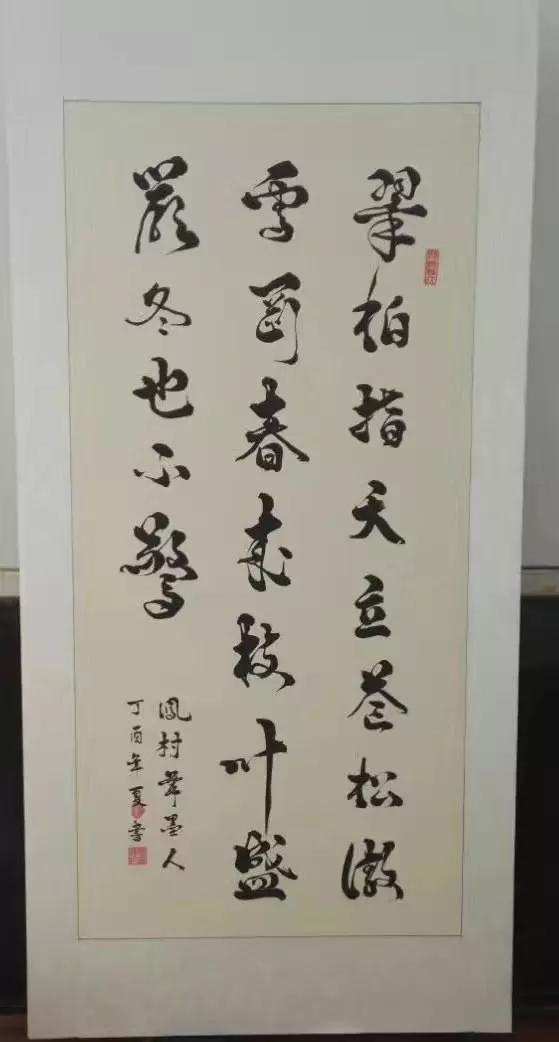 翠柏指天立苍松傲
雪剛春来枝叶盛
嚴冬也不驚
鳳村筆墨人
丁酉年夏书